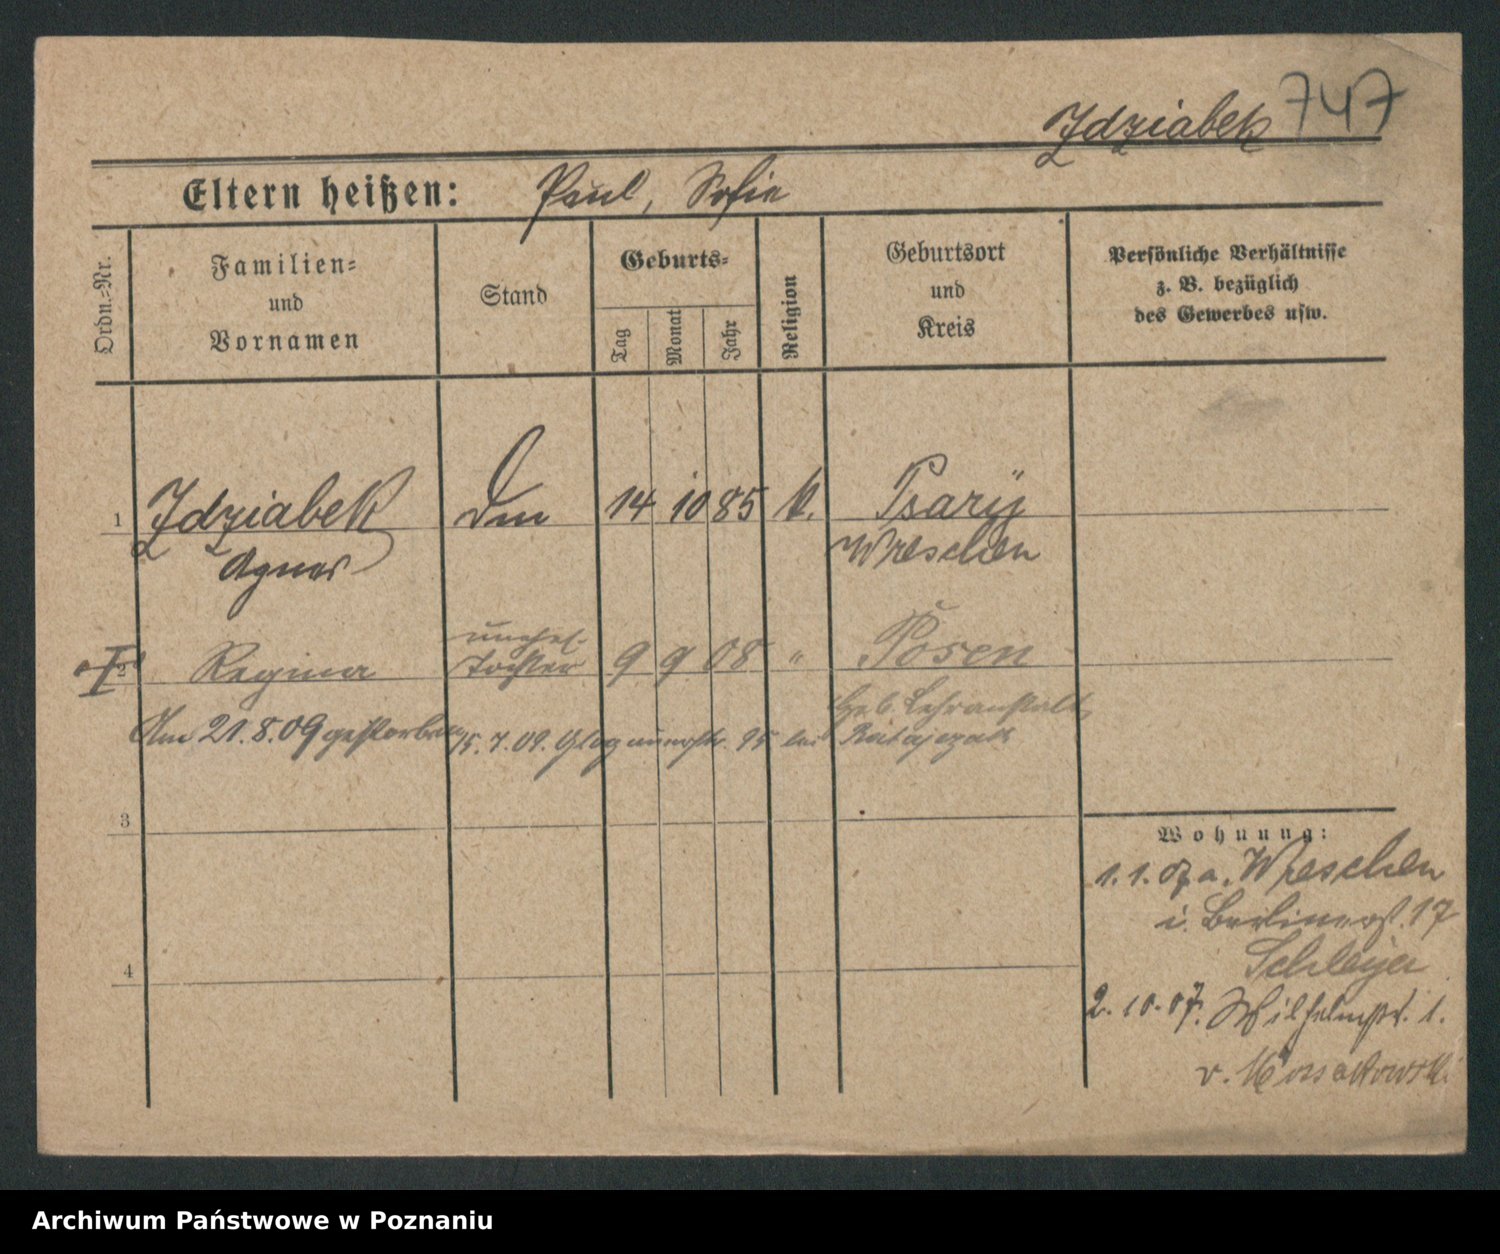 Jdziabek 747
Eltern heißen: Paul, Sofie
Ordn.=Nr.
Familien=
und
Vornamen
Stand
Geburts=
Tag
Monat
Jahr
Religion
Geburtsort
und
Kreis
Persönliche Verhältnisse
z. B. bezüglich
des Gewerbes usw.
1 Jdziabek 14 10 85 k. Psary
Agnes Wreschen
unehel.
2 Regina Tochter 9 9 08 " Posen
Geb. Lehranstalt,
Am 21.8.09 gestorben 15.7.09. Glogauerstr. 95 bei Ratajczak
3
4
Wohnung:
1.1.07 a. Wreschen
i. Berlinerst. 17
Schleyer
2.10.07. Wilhelmstr. 1.
v. Mossakowski
Archiwum Państwowe w Poznaniu